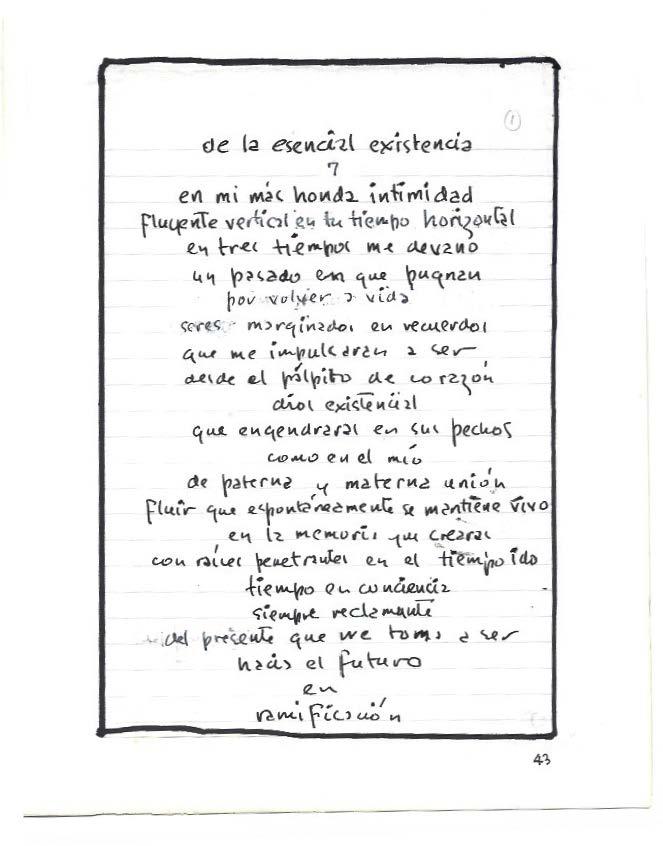 1
de la esencial existencia
7
en mi más honda intimidad
fluyente vertical en tu tiempo horizontal
en tres tiempos me devano
un pasado en que pugnan
por volver a vida
seres marginados en recuerdos
que me impulsaran a ser
desde el pálpito de corazón
dios existencial
que engendraras en sus pechos
como en el mío
de paterna y materna unión
fluir que espontáneamente se mantiene vivo
en la memoria que crearas
con raíces penetrantes en el tiempo ido
tiempo en conciencia
siempre reclamante
del presente que me toma a ser
hacia el futuro
en
ramificación
43